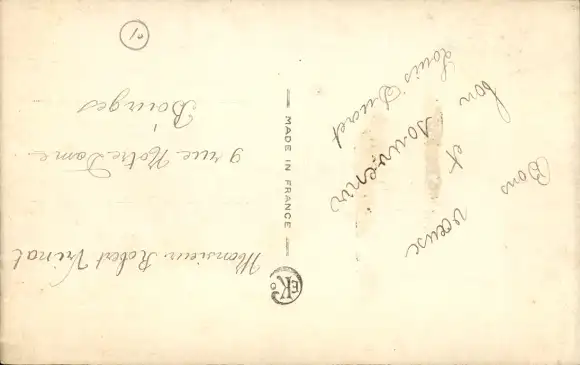 Bons vœux
et
bon souvenir
Louis Ducret
MADE IN FRANCE
EK
Monsieur Robert Vrinat
9 rue Notre Dame
Bourges